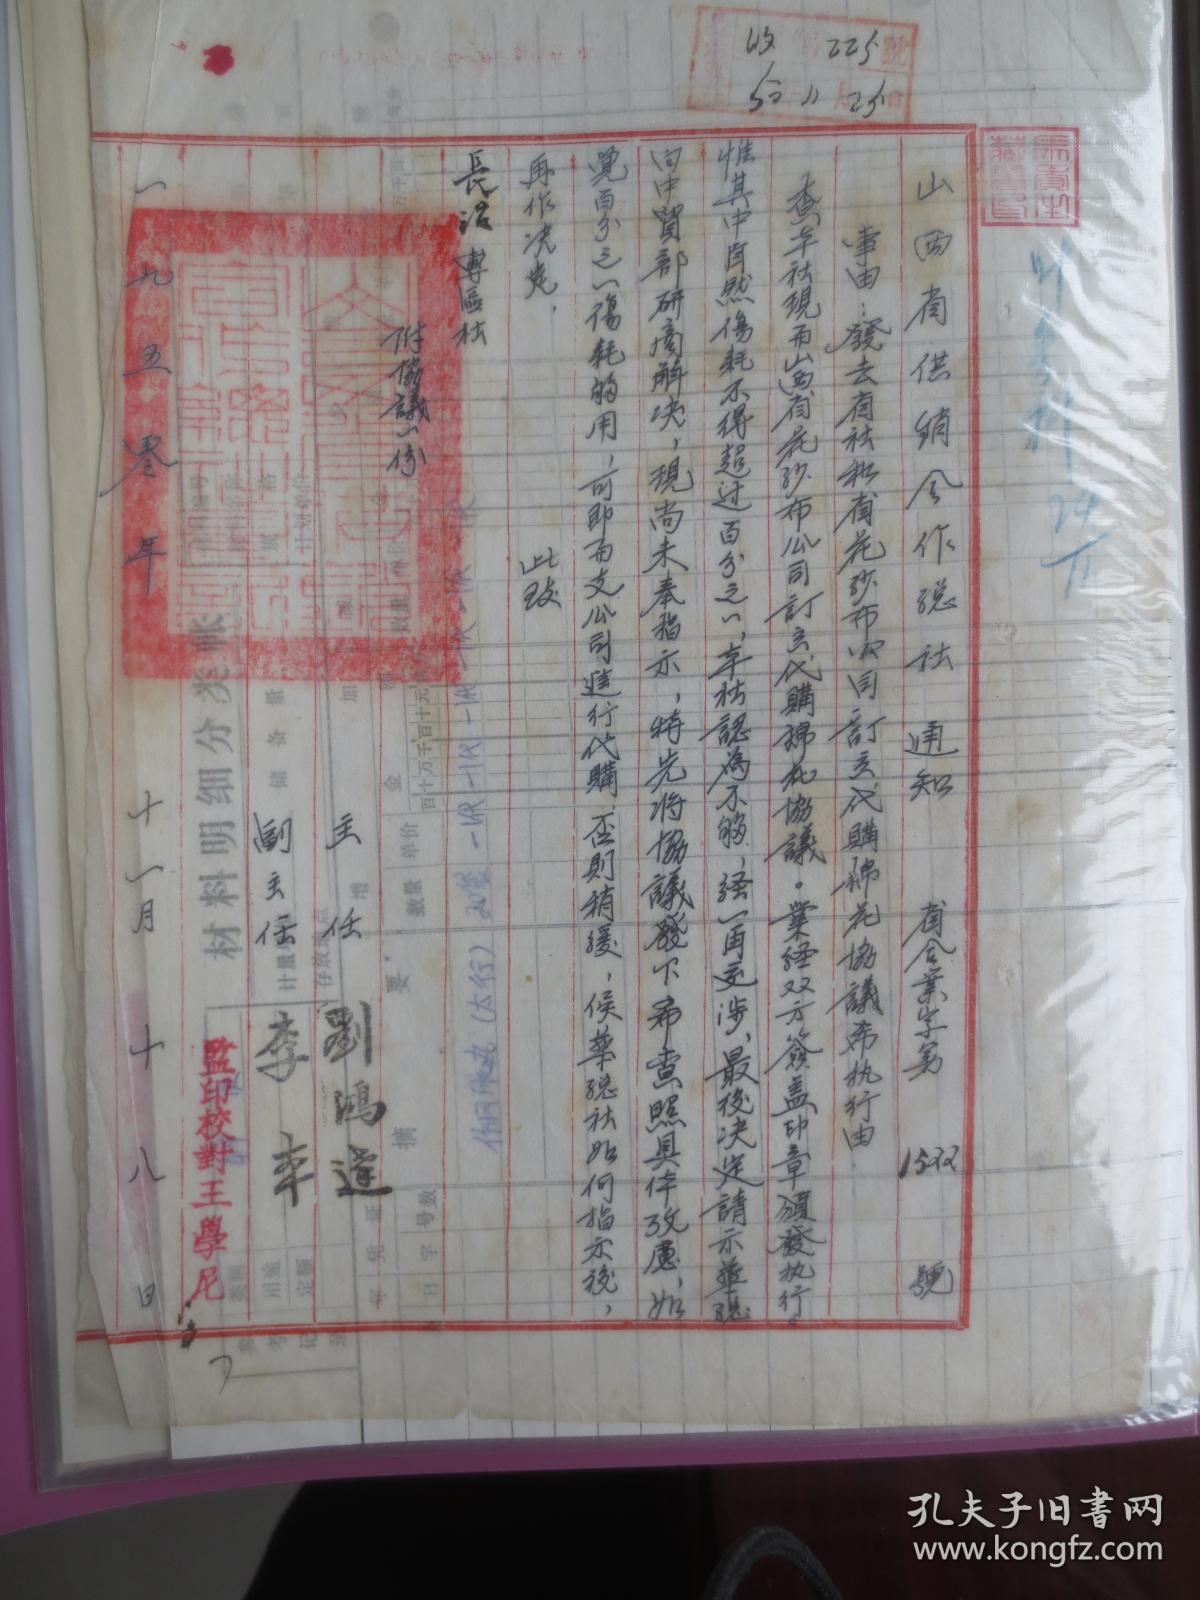 收 225 號
50 11 25 日
山西省供銷合作總社 通知 省合業字第 1522 號
事由：發去省社和省花紗布公司訂立代購棉花協議希执行由
查本社現而山西省花紗布公司訂立代購棉花協議。業经双方簽盖印章頒發执行。
惟其中自然傷耗不得超过百分之一，本社認為不够，经一再交涉，最後决定請示華總
向中貿部研商解决，現尚未奉指示，特先將協議發下希查照具体攷慮，如
覺百分之一傷耗够用，可即而支公司進行代購，否則稍緩，候華總社如何指示後，
再作决定，
此致
長治專區社
附協議一份
主任 劉鴻達
副主任 李本
一九五零年 十一月 十八日
監印校對王學尼
材料明细分类帐
孔夫子旧书网
www.kongfz.com